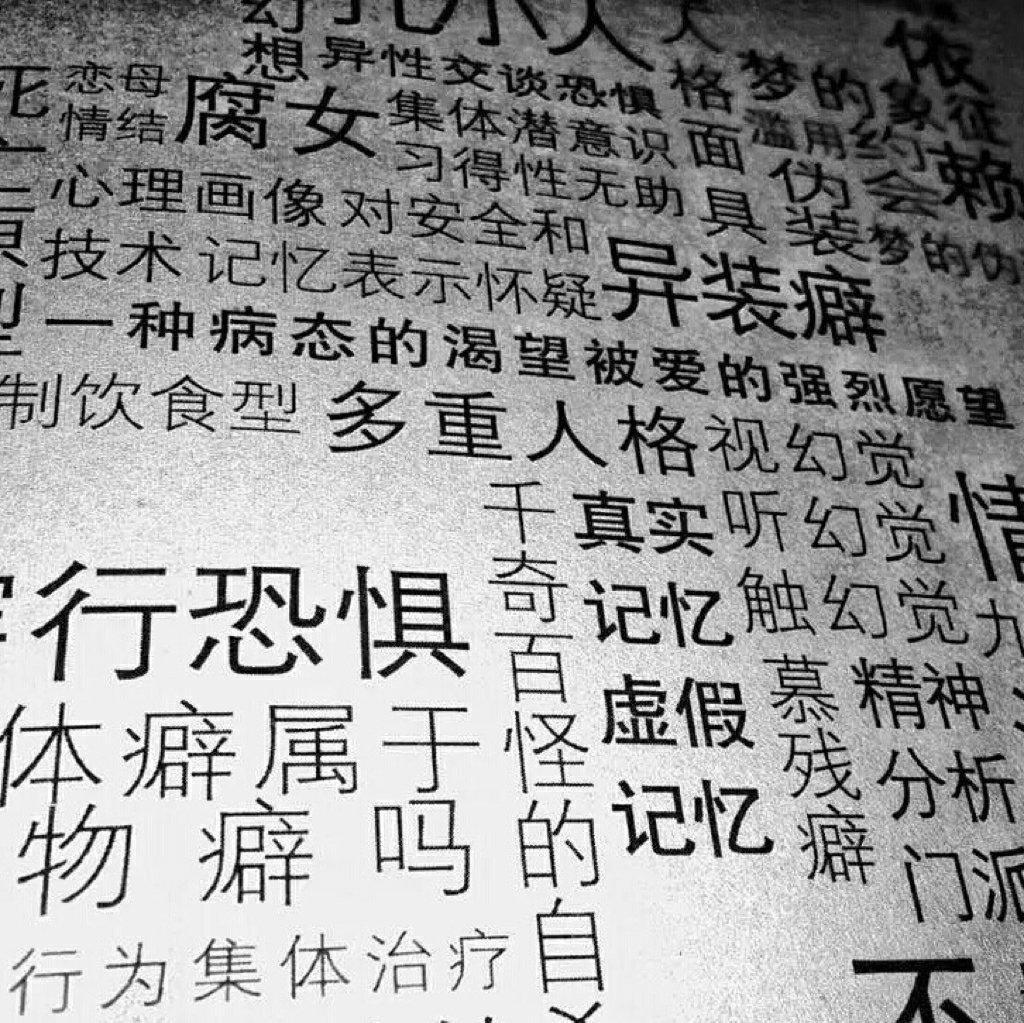 小人
想异性交谈恐惧
恋母
情结
腐女
集体潜意识
习得性无助
人格面具
梦的象征
滥用药
伪装
约会
依赖
梦的伪
心理画像
对安全和
技术
记忆表示怀疑
异装癖
一种病态的渴望被爱的强烈愿望
制饮食型
多重人格
视幻觉
听幻觉
触幻觉
千奇百怪的自
真实
记忆
虚假
记忆
情
行恐惧
慕残癖
精神
分析
门派
体癖属于
物癖吗
行为集体治疗
不